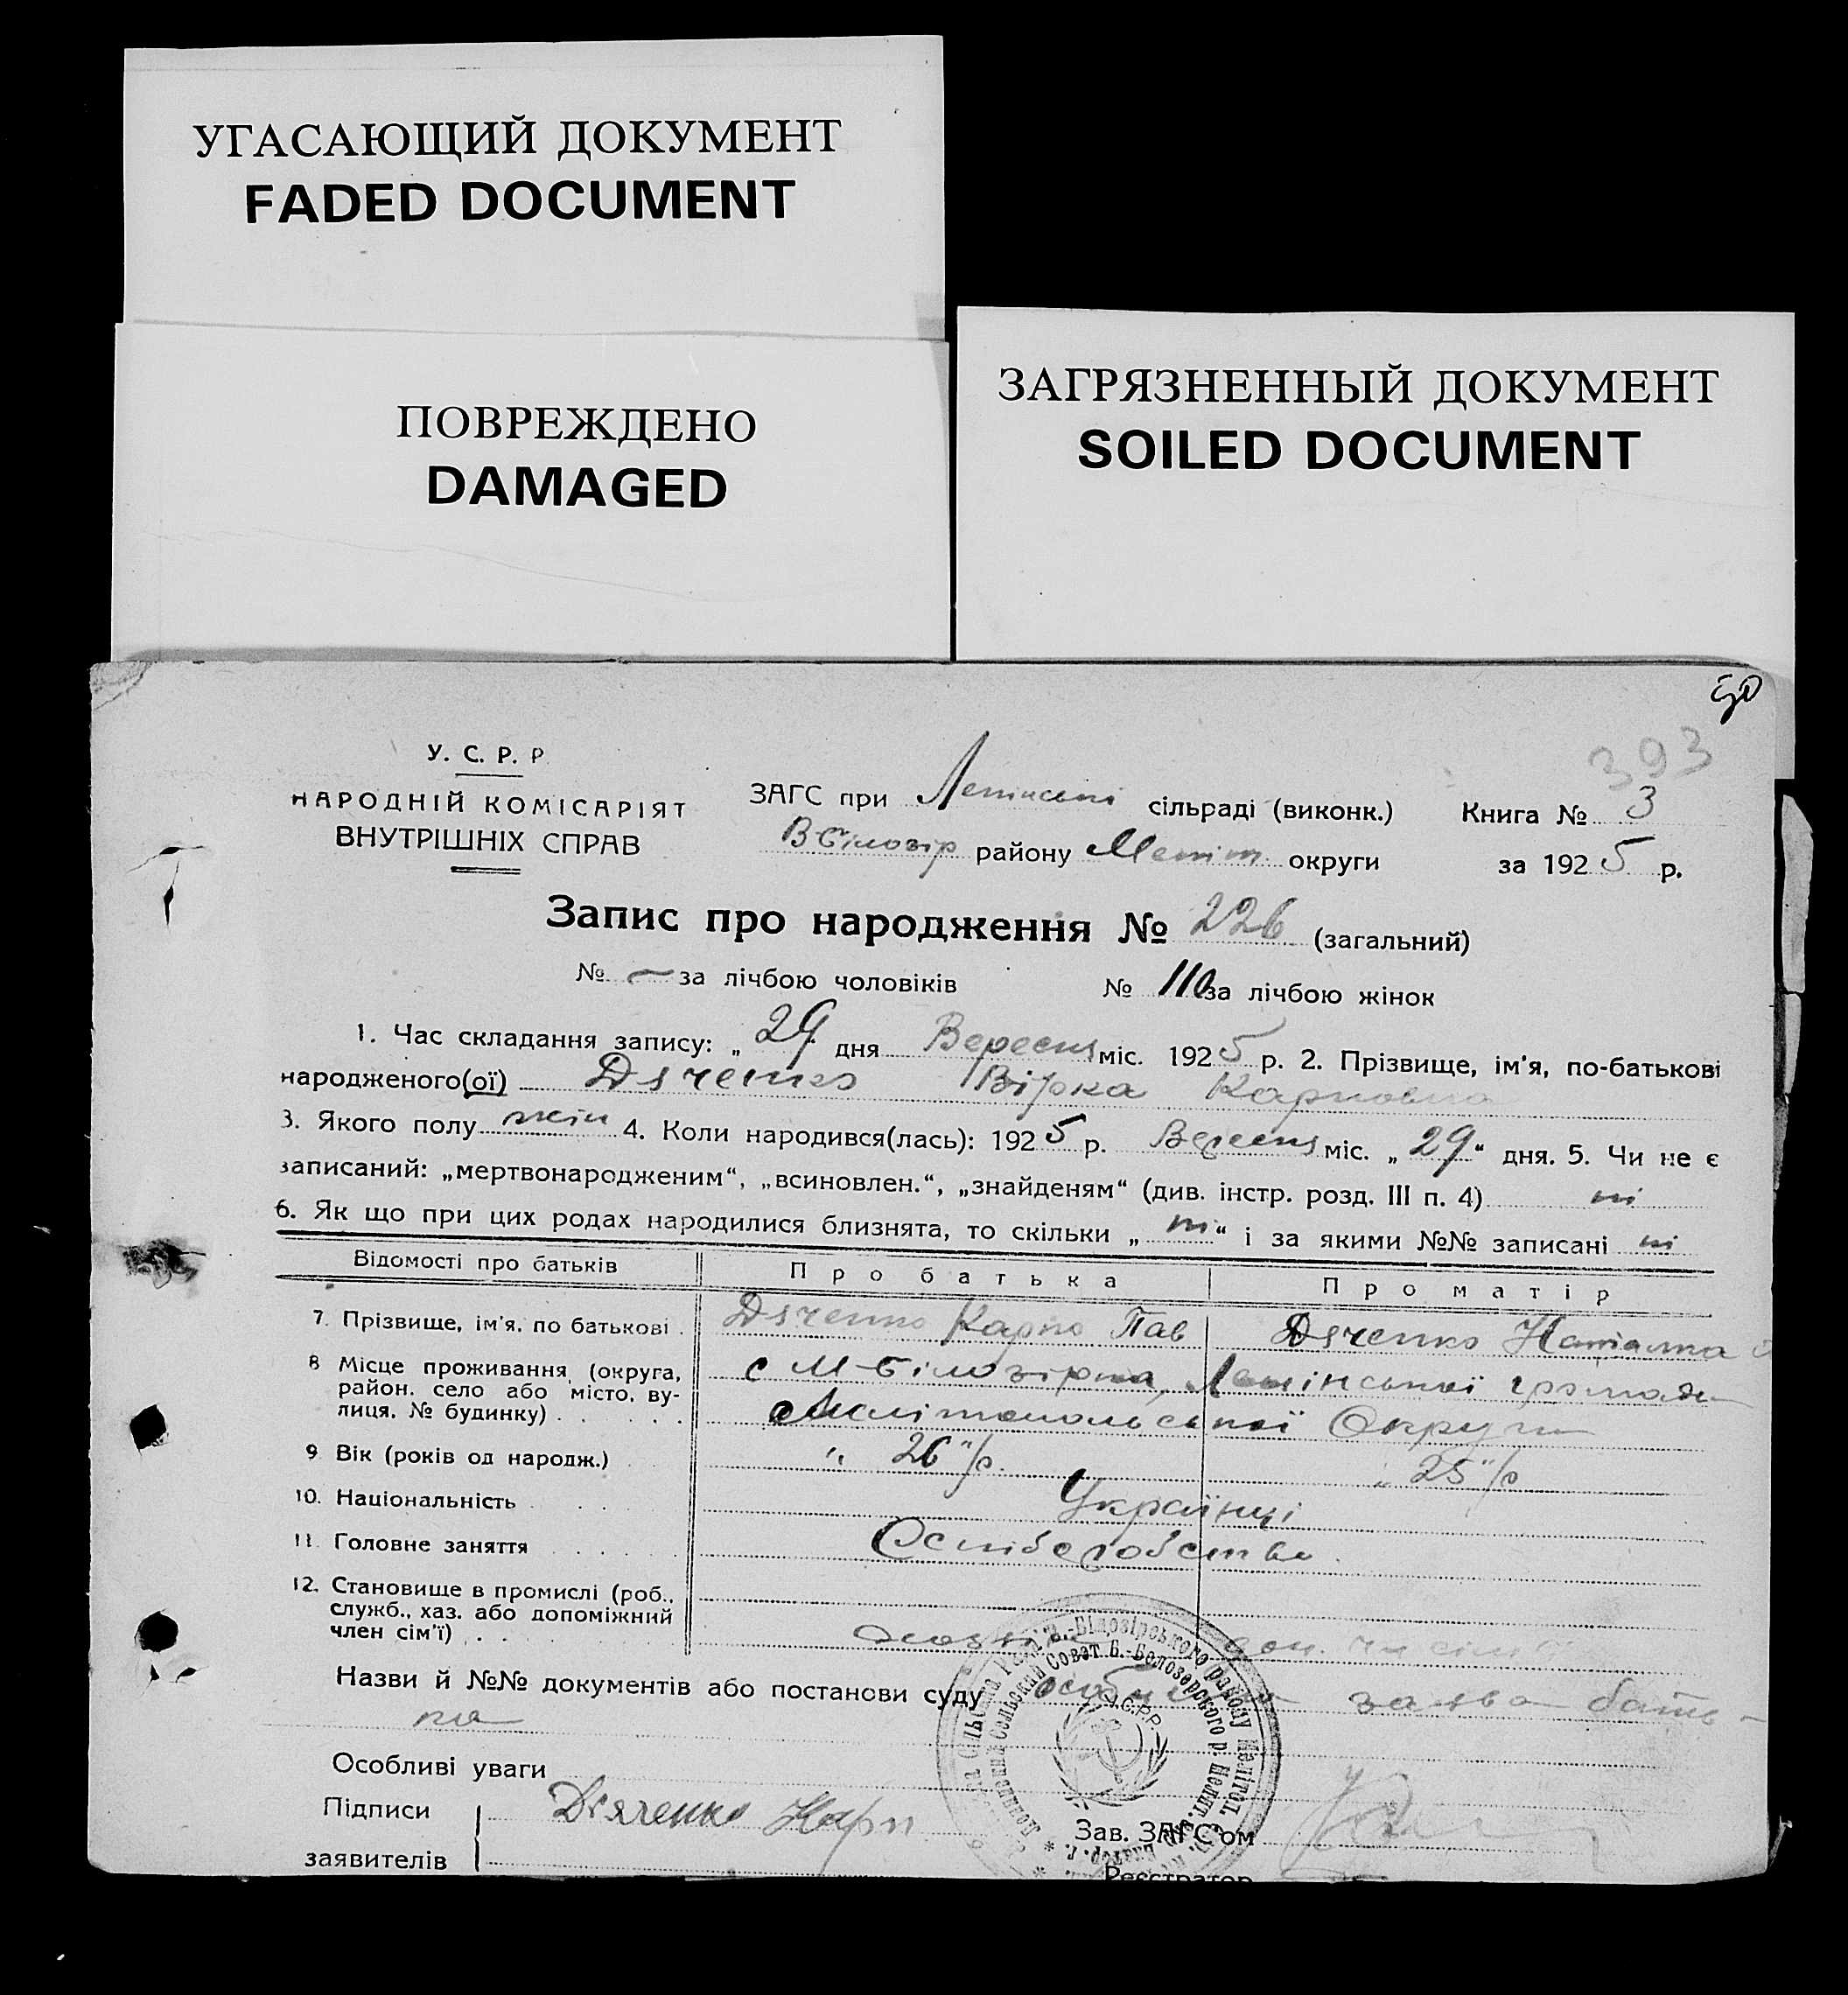 УГАСАЮЩИЙ ДОКУМЕНТ
FADED DOCUMENT
ПОВРЕЖДЕНО
DAMAGED
ЗАГРЯЗНЕННЫЙ ДОКУМЕНТ
SOILED DOCUMENT
50
393
У. С. Р. Р
НАРОДНІЙ КОМІСАРІЯТ
ВНУТРІШНІХ СПРАВ
ЗАГС при сільраді (виконк.) Книга № 3
В Білозір району Меліт округи за 1925 р.
Запис про народження № 226 (загальний)
№ – за лічбою чоловіків № 110 за лічбою жінок
1. Час складання запису: „ 29 дня Вересня міс. 1925 р. 2. Прізвище, ім'я, по-батькові
народженого(ої) Дяченко Вірка Карповна
3. Якого полу жін 4. Коли народився(лась): 1925 р. Вересня міс. „ 29 “ дня. 5. Чи не є
записаний: „мертвонародженим“, „всиновлен.“, „знайденям“ (див. інстр. розд. III п. 4) ні
6. Як що при цих родах народилися близнята, то скільки „ ні “ і за якими №№ записані ні
Відомості про батьків Про батька Про матір
7. Прізвище, ім'я, по батькові . Дяченко Карпо Пав Дяченко Наталка
8 Місце проживання (округа, с М-Білозірка, громади
район. село або місто, ву-
лиця, № будинку) . . . . . . Мелітопольської Округи
9 Вік (років од народж.) „ 26 “/р. „ 25 “/р
10. Національність Українці
11. Головне заняття
12. Становище в промислі (роб.,
служб., хаз. або допоміжний
член сім'ї) . . доп. чл сім'ї
Назви й №№ документів або постанови суду заява бать-
ка
Особливі уваги
Підписи Дяченко Карп
заявителів
Зав. ЗАГС'ом
Реєстратор
В.-Білозірського району Меліт
Сельский Совет В.-Белозерского р. Мелит.
У.С.Р.Р.